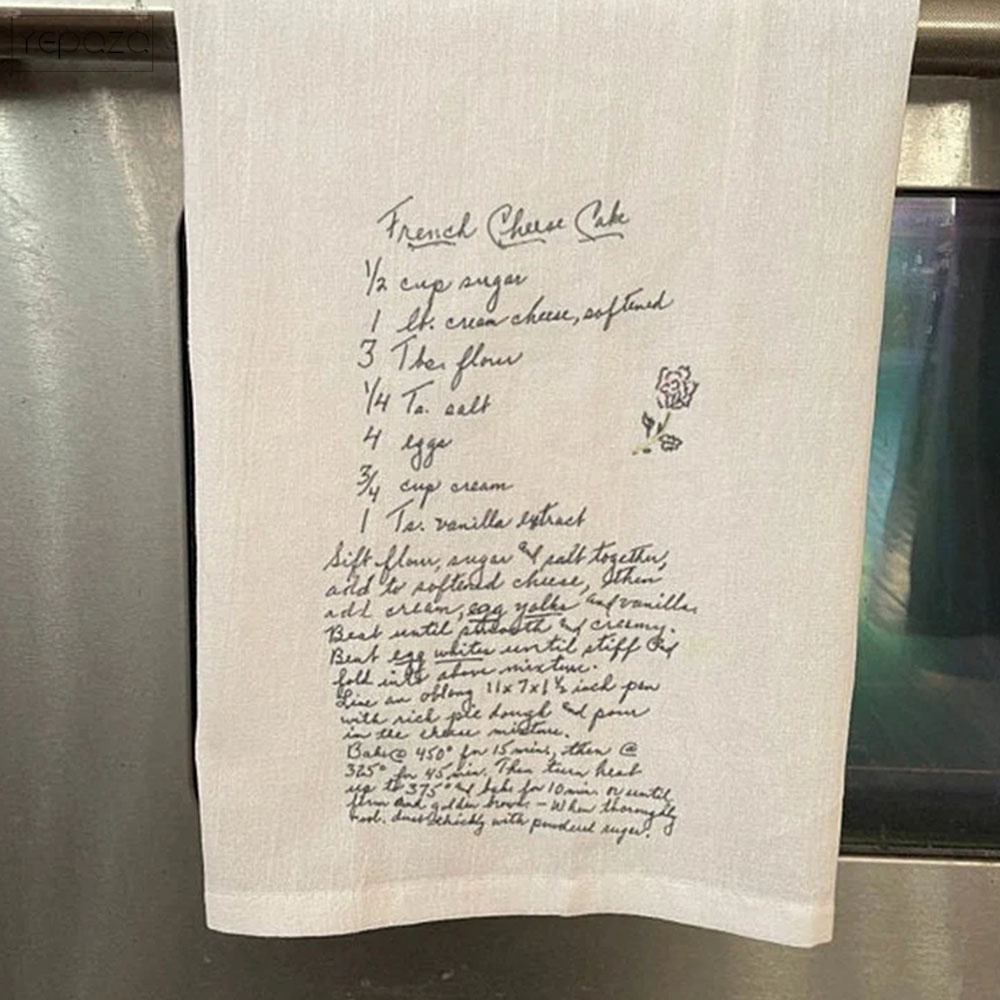 repaza
French Cheese Cake
1/2 cup sugar
1 lb. cream cheese, softened
3 Tbs. flour
1/4 Ts. salt
4 eggs
3/4 cup cream
1 Ts. vanilla extract
Sift flour, sugar and salt together,
add to softened cheese, then
add cream, egg yolks and vanilla.
Beat until smooth and creamy.
Beat egg whites until stiff and
fold into above mixture.
Line an oblong 11x7x1 1/2 inch pan
with rich pie dough and pour
in the cheese mixture.
Bake @ 450° for 15 mins, then @
325° for 45 min. Then turn heat
up to 375° and bake for 10 min or until
firm and golden brown - When thoroughly
cool, dust thickly with powdered sugar.